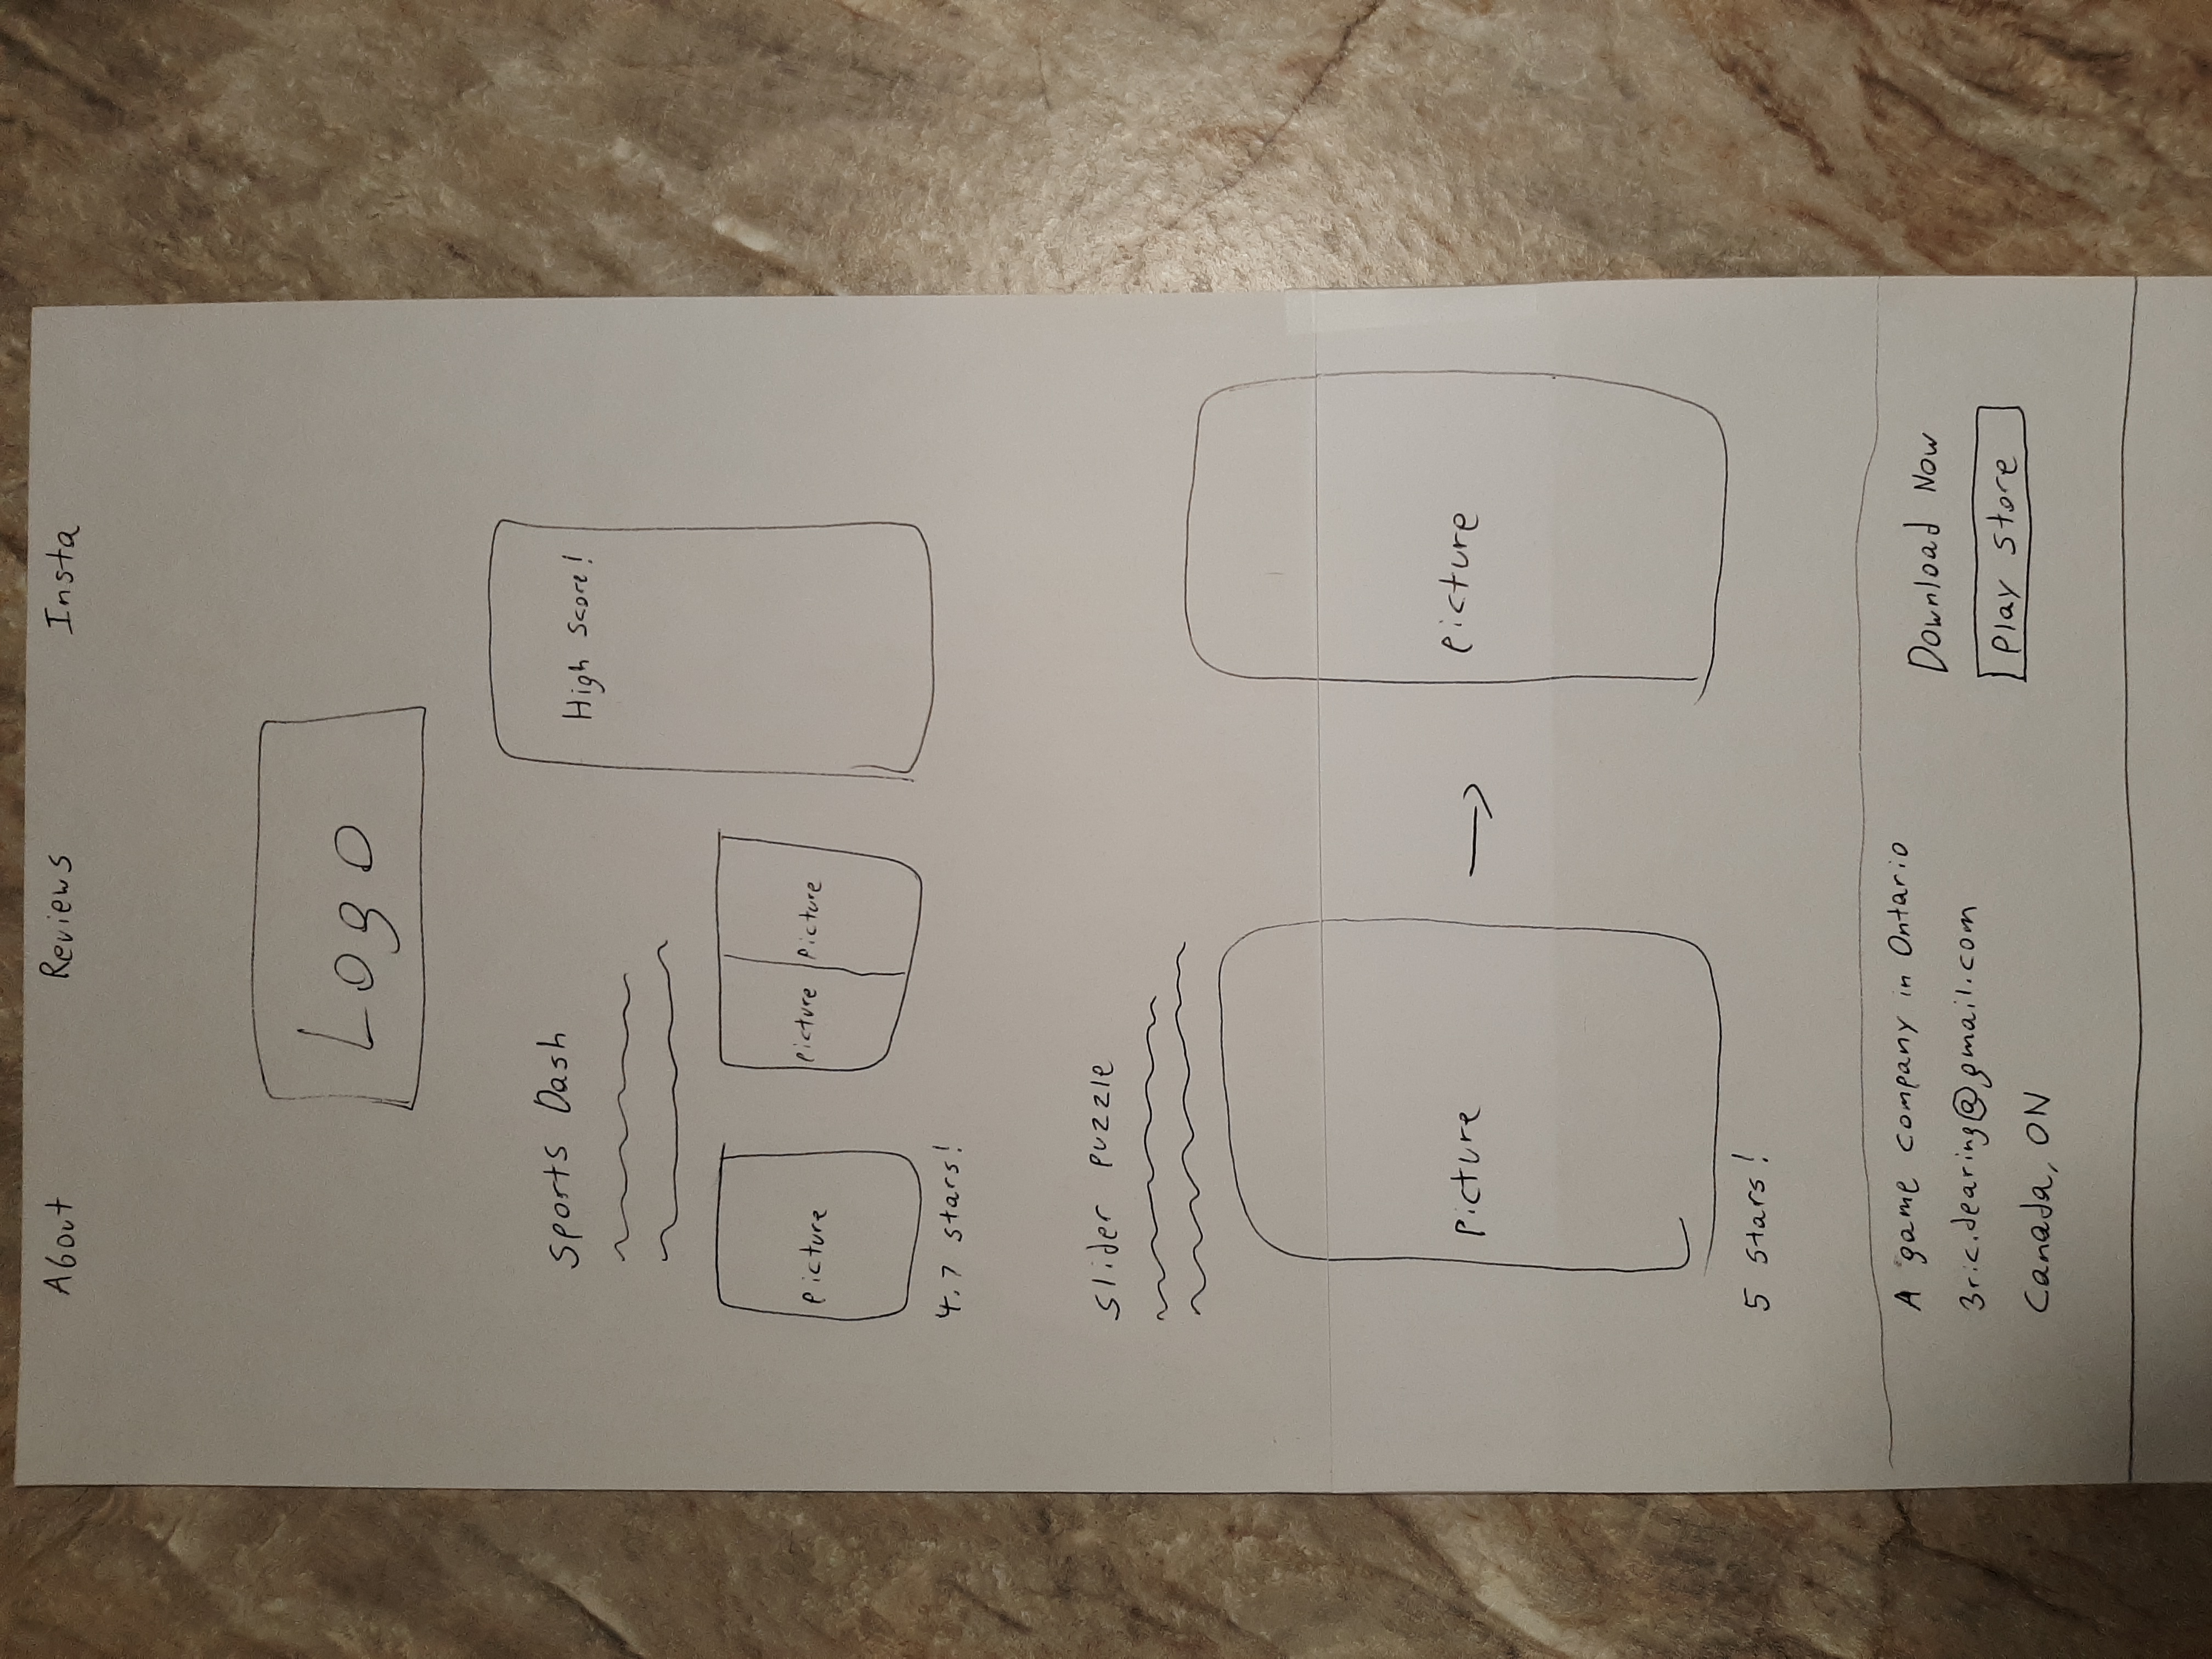 About Reviews Insta
Logo
Sports Dash
High Score!
Picture
Picture Picture
4.7 stars!
Slider Puzzle
Picture → Picture
5 stars!
A game company in Ontario
3ric.dearing@gmail.com
Canada, ON
Download Now
Play Store